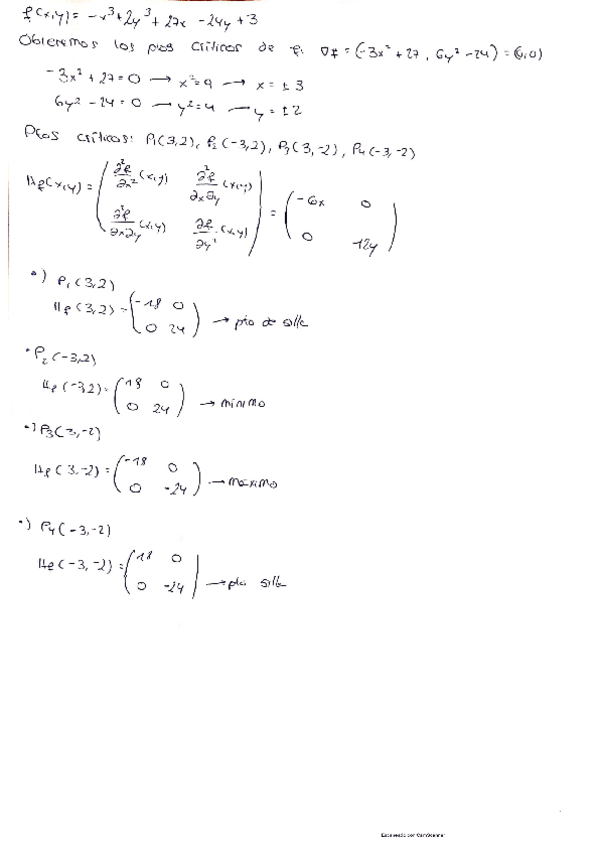 f(x,y) = -x³+2y³+27x -24y+3
Obtenemos los ptos críticos de f: ∇f = (-3x²+27, 6y²-24) = (0,0)
-3x²+27=0 → x²=9 → x=±3
6y²-24=0 → y²=4 → y=±2
Ptos críticos: P₁(3,2), P₂(-3,2), P₃(3,-2), P₄(-3,-2)
Hf(x,y) = ( ∂²f/∂x² (x,y) ∂²f/∂x∂y (x,y) ) = ( -6x 0 )
( ∂²f/∂x∂y (x,y) ∂f/∂y² (x,y) ) ( 0 12y )
•) P₁(3,2)
Hf(3,2) = ( -18 0 )
( 0 24 ) → pto de silla
• P₂(-3,2)
Hf(-3,2) = ( 18 0 )
( 0 24 ) → mínimo
•) P₃(3,-2)
Hf(3,-2) = ( -18 0 )
( 0 -24 ) → máximo
•) P₄(-3,-2)
Hf(-3,-2) = ( 18 0 )
( 0 -24 ) → pto silla
Escaneado con CamScanner